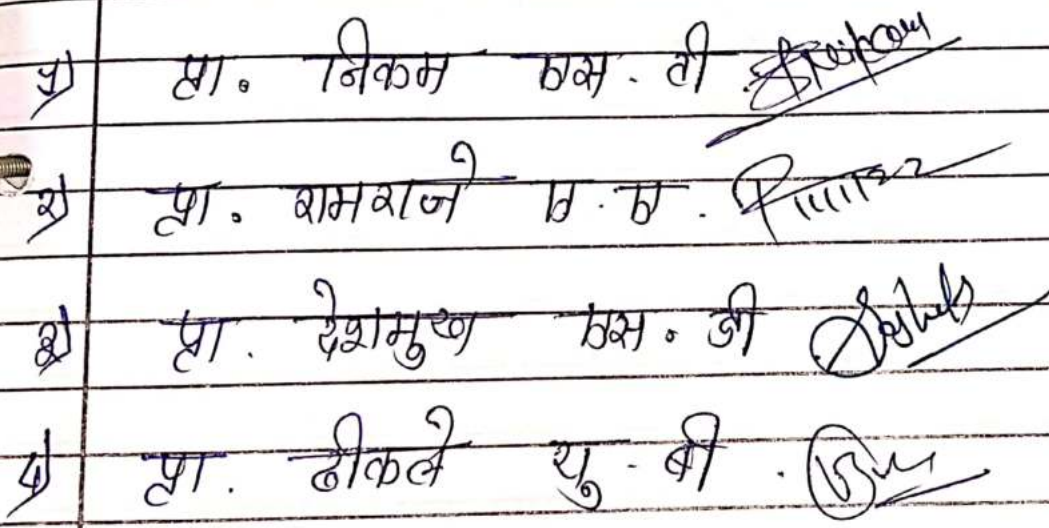 १) प्रा. निकम एस. टी.
२) प्रा. रामराजे ए. ए.
३) प्रा. देशमुख एस. डी
४) प्रा. ढीकले यु. बी.